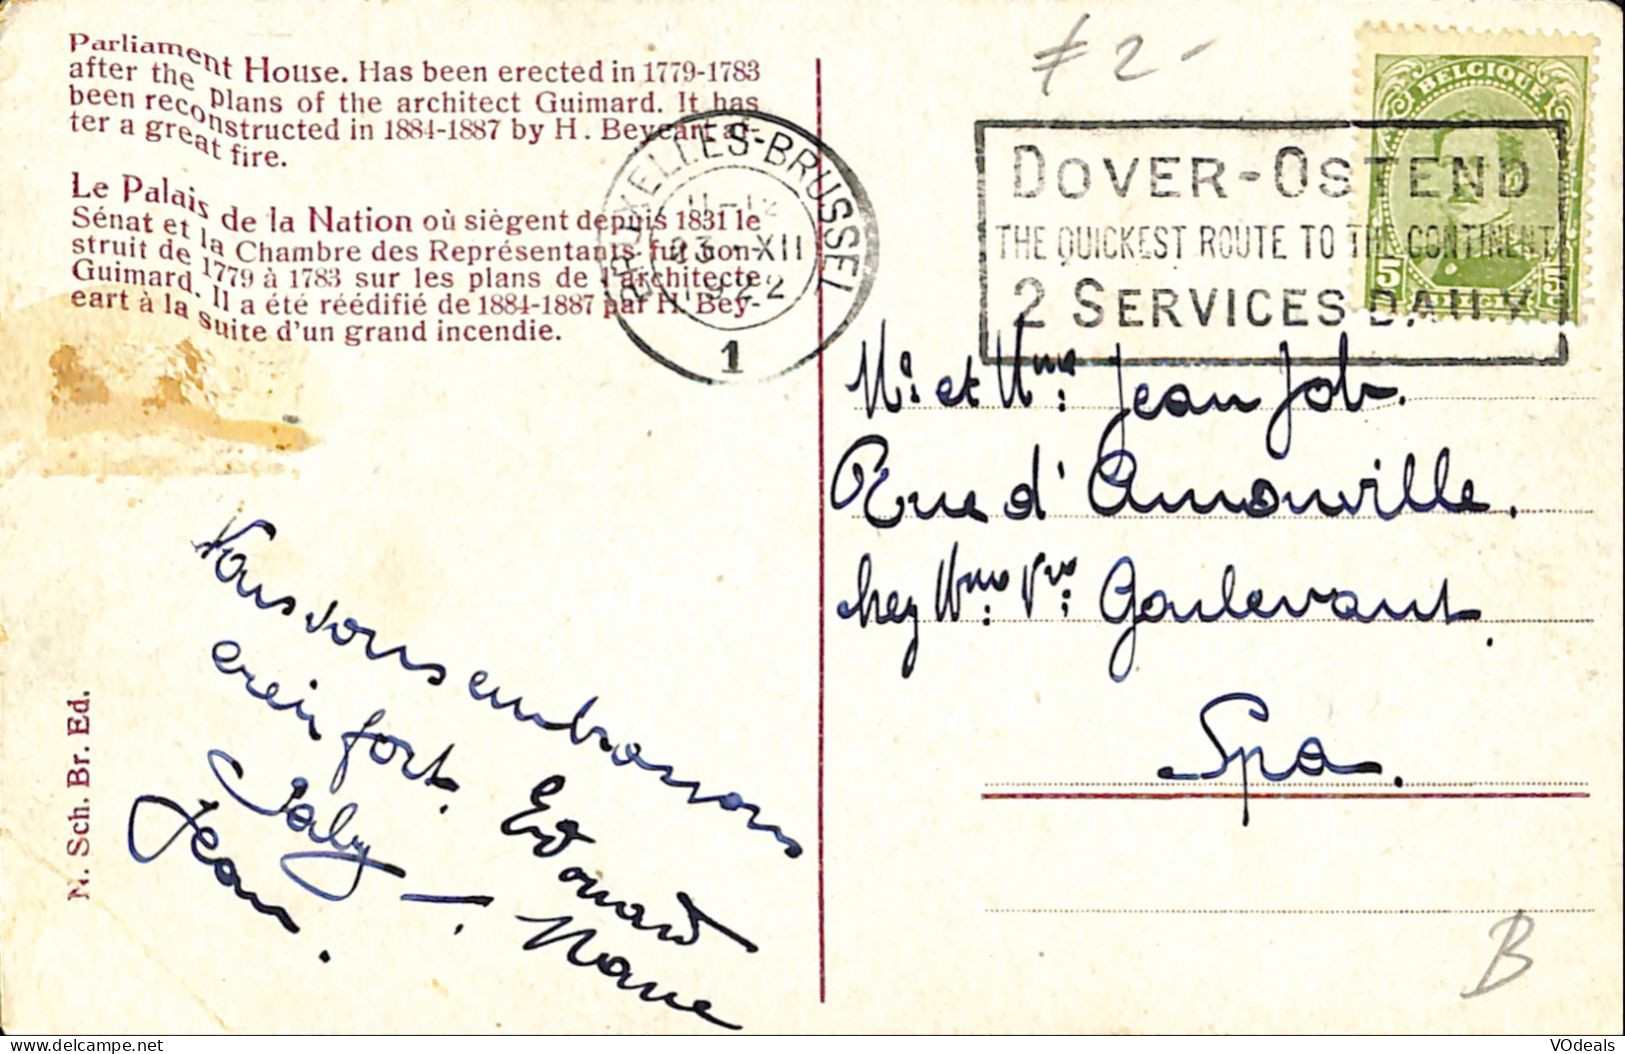 Parliament House. Has been erected in 1779-1783
after the plans of the architect Guimard. It has
been reconstructed in 1884-1887 by H. Beyeart af-
ter a great fire.
Le Palais de la Nation où siègent depuis 1831 le
Sénat et la Chambre des Représentants fut con-
struit de 1779 à 1783 sur les plans de l'architecte
Guimard. Il a été réédifié de 1884-1887 par H. Bey-
eart à la suite d'un grand incendie.
BRUXELLES-BRUSSEL
11-12
23-XII
1922
1
≠ 2-
BELGIQUE
5 5
BELGIË
DOVER-OSTEND
THE QUICKEST ROUTE TO THE CONTINENT
2 SERVICES DAILY
Mr et Mme Jean Job.
Rue d'Amonville.
chez Mme Vve Goulevant.
Spa.
Nous vous embrassons
bien fort. Edouard
Gaby - Marie
Jean.
N. Sch. Br. Ed.
B
VOdeals